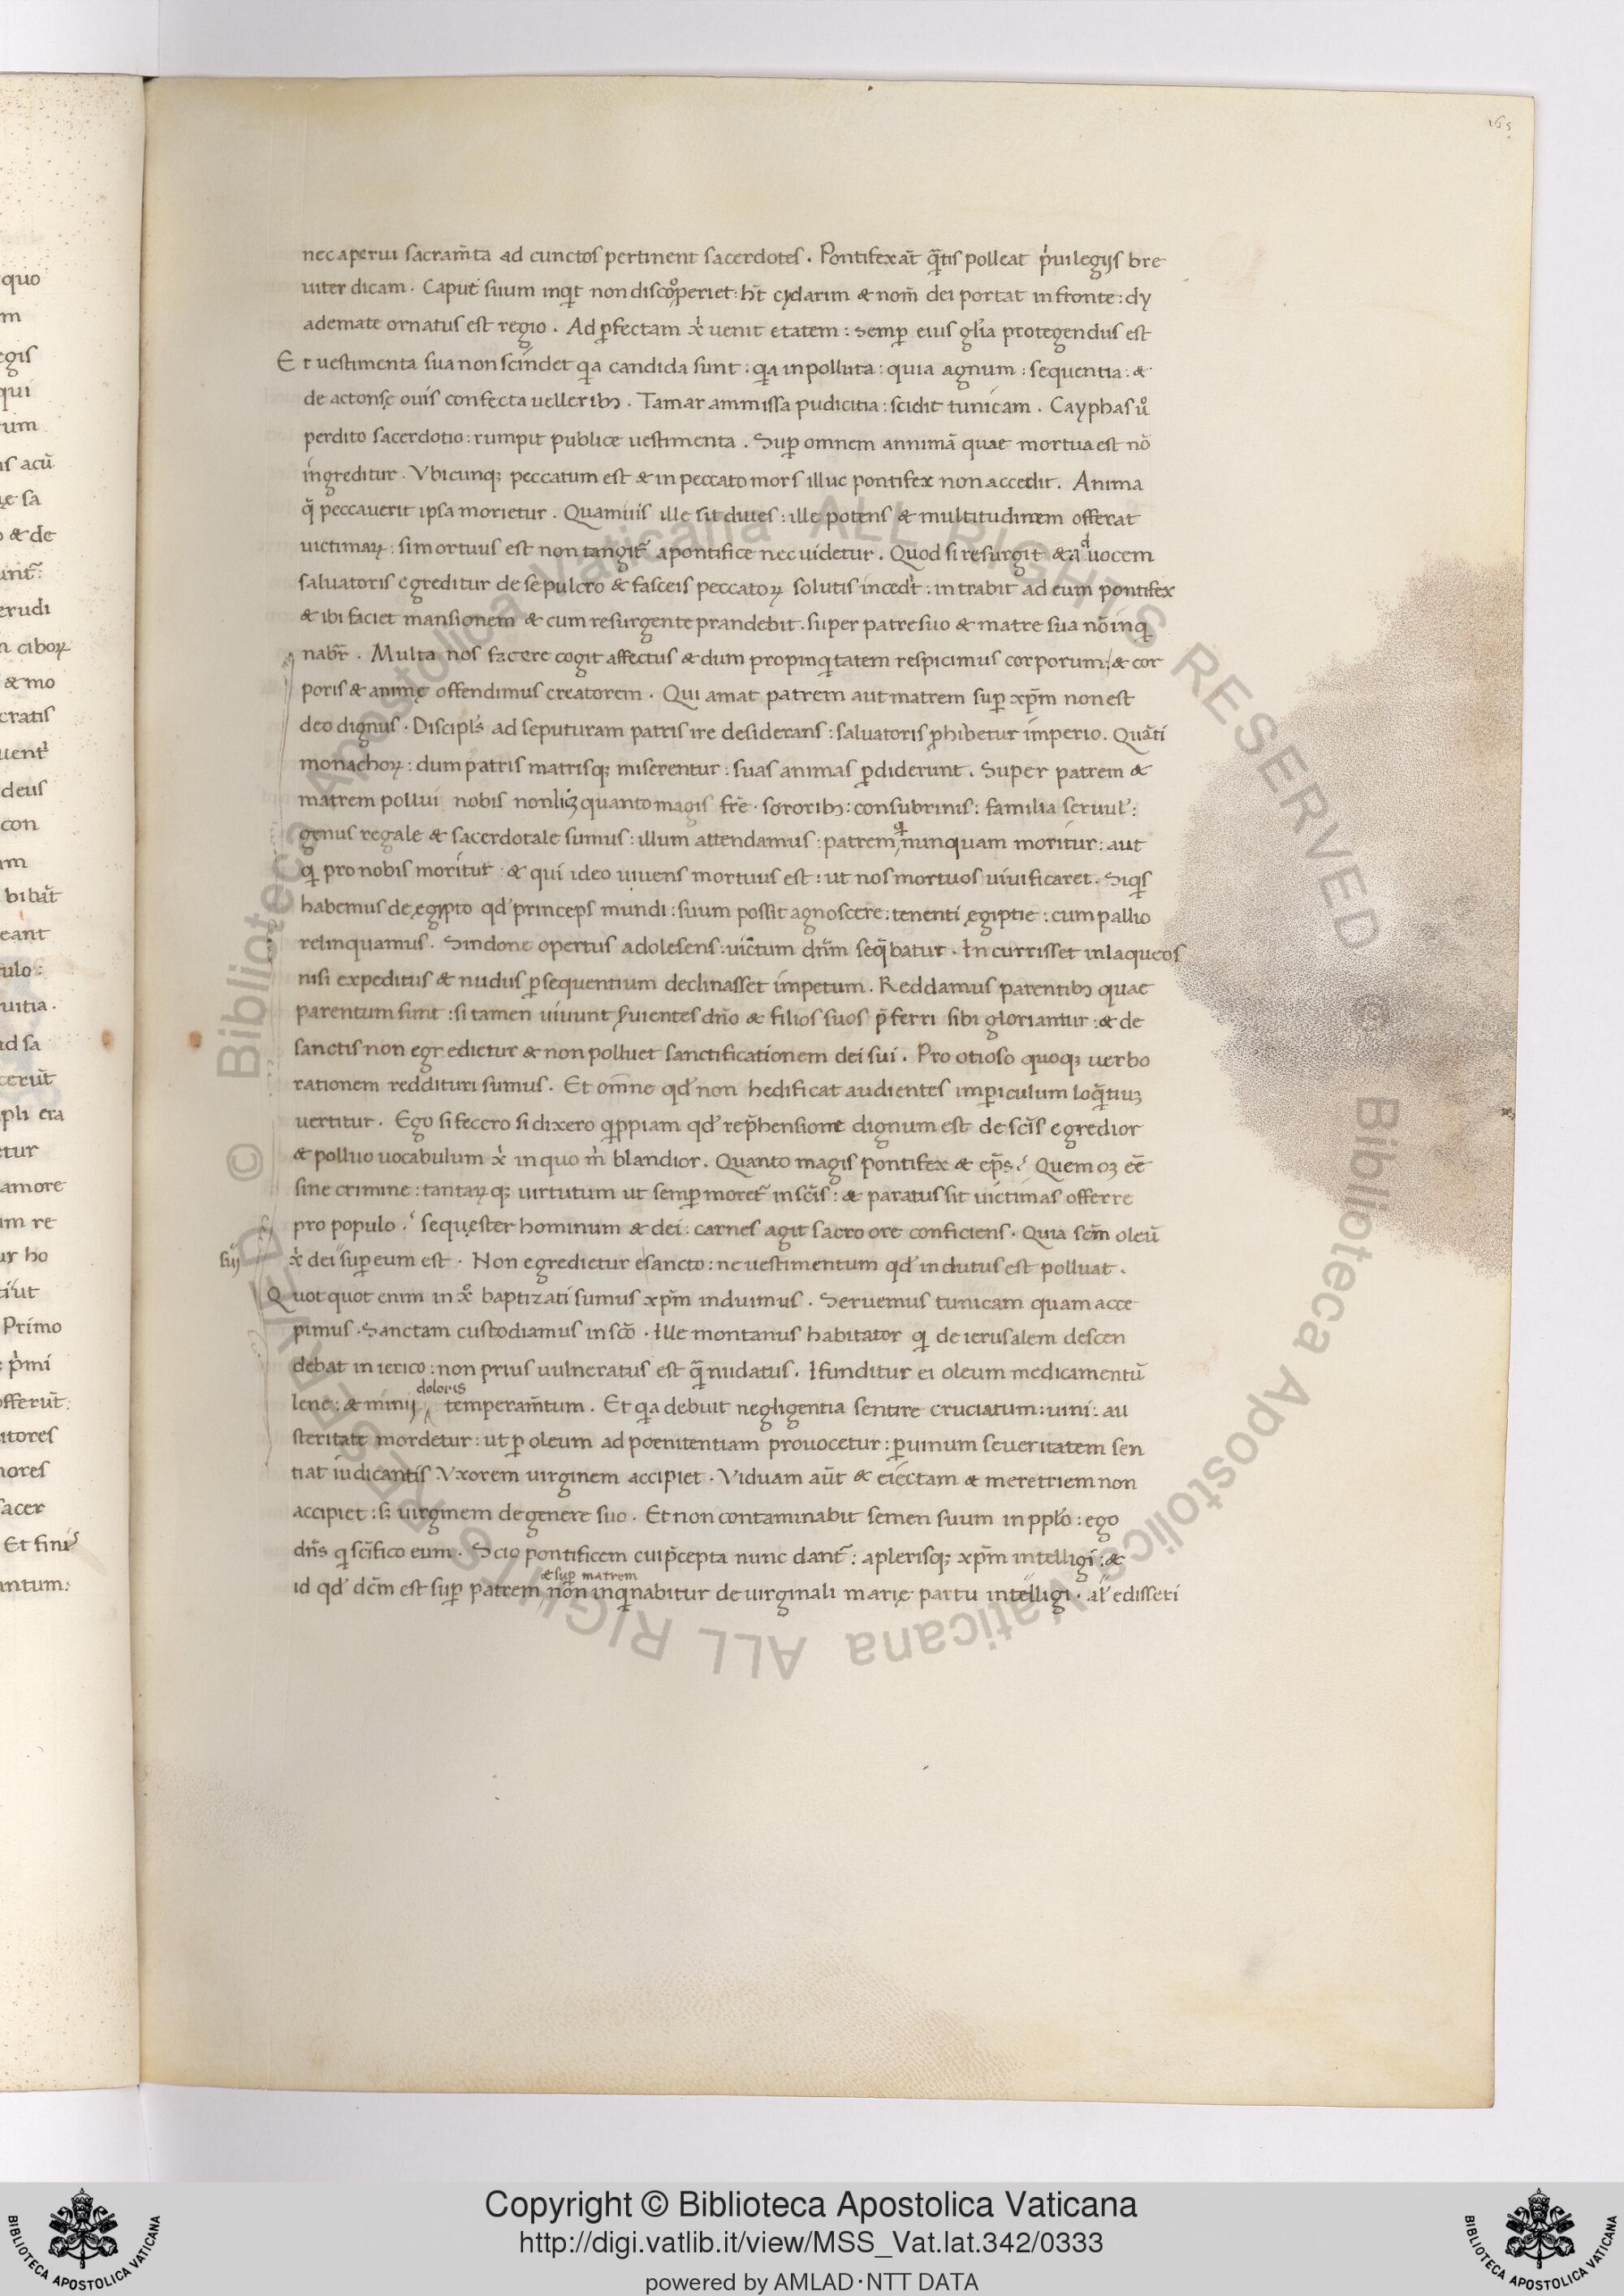 165
nec aperui sacram̄ta ad cunctos pertinent sacerdotes . Pontifex aū̄t q̄tis polleat p̍uilegijs bre
uiter dicam . Caput suum inq̍t non discoperiet : h̄t cydarim & nom̄ dei portat in fronte : dy
ademate ornatus est regio . Ad ꝑfectam x̍ uenit etatem : semꝑ eius gl̍ia protegendus est
Et uestimenta sua non scindet q̍a candida sunt : q̍a inpolluta : quia agnum : sequentia : &
de actonsę ouis confecta uelleribꝫ . Tamar ammissa pudicitia : scidit tunicam . Cayphas uͦ
perdito sacerdotio : rumpit publice uestimenta . Suꝑ omnem annimā quae mortua est nō
ingreditur . Vbicunqꝫ peccatum est & in peccato mors illuc pontifex non accedit . Anima
q̄ peccauerit ipsa morietur . Quamuis ille sit diues : ille potens & multitudinem offerat
uictimaꝝ : si mortuus est non tangit᷑ a pontifice nec uidetur . Quod si resurgit & ad uocem
saluatoris egreditur de sepulcro & fasceis peccatoꝝ solutis inced̍t : intrabit ad eum pontifex
& ibi faciet mansionem & cum resurgente prandebit . super patre suo & matre sua nō inq̍
nabr̄ . Multa nos facere cogit affectus & dum propinq̍tatem respicimus corporum : & cor
poris & animę offendimus creatorem . Qui amat patrem aut matrem suꝑ xp̄m non est
deo dignus . Discipl̍s ad seputuram patris ire desiderans : saluatoris ꝓhibetur imperio . Quāti
monachoꝝ : dum patris matrisqꝫ miserentur : suas animas ꝑdiderunt . Super patrem &
matrem pollui nobis non licꝫ quanto magis fr̄e . sororibꝫ : consubrinis : familia seruul̍ :
genus regale & sacerdotale sumus : illum attendamus : patrem q̍ nunquam moritur : aut
q̍ pro nobis moritur : & qui ideo uiuens mortuus est : ut nos mortuos uiuificaret . Siq̍s
habemus de ęgypto qd̍ princeps mundi : suum possit agnoscere : tenenti ęgiptie : cum pallio
relinquamus . Sindone opertus adolesens : uictum dn̄m seq̄batur . Incurrisset in laqueos
nisi expeditus & nudus ꝑsequentium declinasset impetum . Reddamus parentibꝫ quae
parentum sunt : si tamen uiuunt s̍uientes dn̄o & filios suos p̄ferri sibi gloriantur : & de
sanctis non egredietur & non polluet sanctificationem dei sui . Pro otioso quoqꝫ uerbo
rationem reddituri sumus . Et om̄ne qd̍ non hedificat audientes in ꝑiculum loq̄tiuꝫ
uertitur . Ego si fecero si dixero q̍ppiam qd̍ rep̄hensione dignum est de sc̄is egredior
& polluo uocabulum x̍ in quo m̍ blandior . Quanto magis pontifex & ep̄s ? Quem oꝫ eē
sine crimine : tantaꝝqꝫ uirtutum ut semꝑ moret᷑ in sc̄is : & paratus sit uictimas offerre
pro populo . sequęster hominum & dei : carnes agit sacro ore conficiens . Quia sc̄m oleū
suij
x̍ dei suꝑ eum est . Non egredietur e sancto : ne uestimentum qd̍ indutus est polluat .
Quotquot enim in xͦ baptizati sumus xp̄m induimus . Seruemus tunicam quam acce
pimus . Sanctam custodiamus in sc̄o . Ille montanus habitator q̍ de ierusalem descen
debat in ierico : non prius uulneratus est q̄ nudatus . Ifunditur ei oleum medicamentū
lene : & minij doloris temperam̄tum . Et q̍a debuit negligentia sentire cruciatum : uini : au
steritate mordetur : ut ꝑ oleum ad poenitentiam prouocetur : ꝑ uinum seueritatem sen
tiat iudicantis Vxorem uirginem accipiet . Viduam aūt & eiectam & meretriem non
accipiet : sꝫ uirginem de genere suo . Et non contaminabit semen suum in ppl̍o : ego
dn̄s q̍ sc̄ifico eum . Scio pontificem cui p̄cepta nunc dant᷑ : a plerisqꝫ xp̄m intelligi : &
id qd̍ dc̄m est suꝑ patrem & suꝑ matrem non inq̍nabitur de uirginali marię partu intelligi . al̍ edisseri
quo
m
egis
qui
um
is acū
ę sa
o & de
unt᷑
erudi
m ciboꝝ
& mo
cratis
uent᷑
deus
con
m
bibāt
eant
ulo :
uitia .
ad sa
cerūt
pli era
etur
amore
um re
ur ho
ti ut
Primo
p̍mi
offerūt :
itores
nores
sacer
Et finis
antum :
© Biblioteca Apostolica Vaticana ALL RIGHTS RESERVED
© Biblioteca Apostolica Vaticana ALL RIGHTS RESERVED
Copyright © Biblioteca Apostolica Vaticana
http://digi.vatlib.it/view/MSS_Vat.lat.342/0333
powered by AMLAD·NTT DATA
BIBLIOTECA APOSTOLICA VATICANA
BIBLIOTECA APOSTOLICA VATICANA